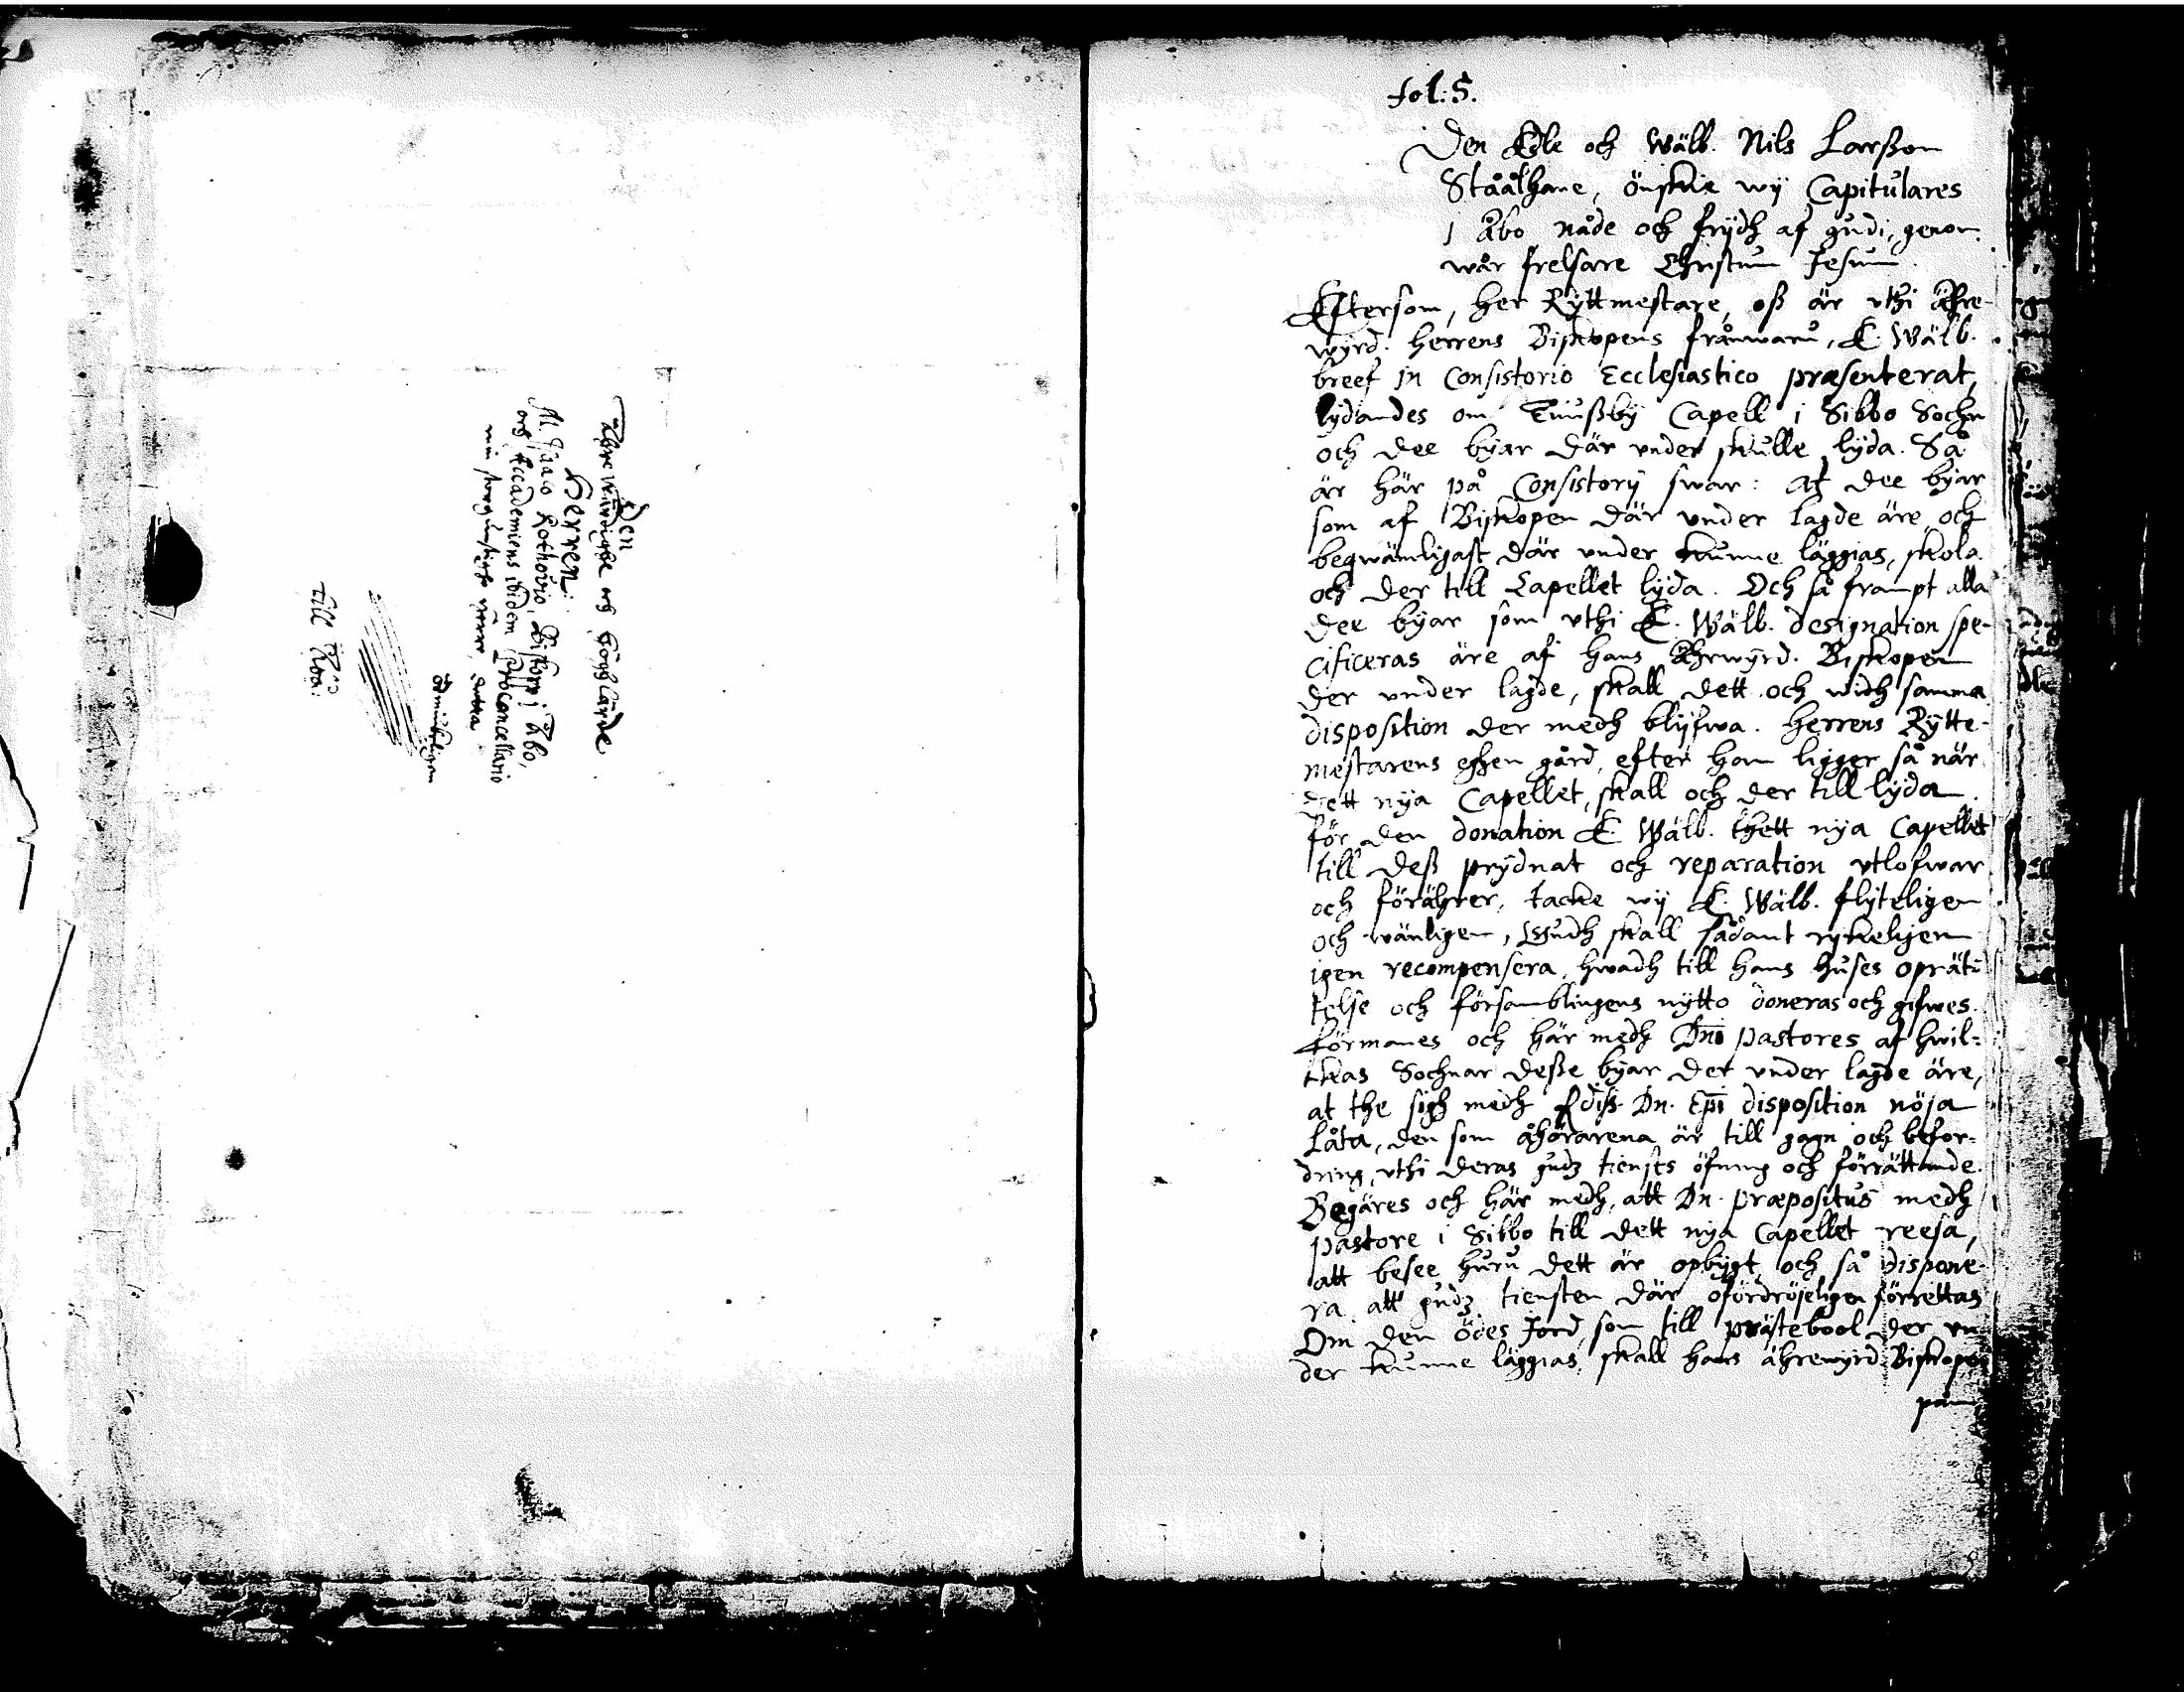 Den
Ährewärdigste och höghlärde
Herren
M. Isaco Rothovio, Biskopp i Åbo,
och Accademiens ibidem Procancellario
min storgunstigste
ödmiukeligen
till Åbo:
fol: 5.
Den Edle och Wälb. Nils Larßon
Ståålhane, önskie wÿ Capitulares
i Åbo nåde och frÿdh af gudi, genom
wår frelsare Christum Jesum
Efftersom, her Rÿttmestare, oß är uthi Ähre-
wÿrd. herrens Biskopens frånwaru, E. Wälb.
breef in Consistorio Ecclesiastico præsenterat,
lÿdandes om Tuußbÿ Capell i Sibbo Sochn
och dee bÿar där under skulle lÿda. Så
är här på Consistorÿ swar: At dee bÿar
som af Biskopen där under lagde äre och
beqwämligast där under kunne läggias, skola
och der till Capellet lÿda. Och så frampt alla
dee bÿar som uthi E. Wälb. designation spe-
cificeras äre af hans Ährwÿrd. Biskopen
der under lagde, skall dett och widh samma
disposition der medh blifwa. Herrens Rÿtte-
mestarens eghen gård, efter han ligger så när
dett nÿa Capellet, skall och der till lÿda.
för den donation E. Wälb. thett nÿa Capellet
till deß prÿdnat och reparation utlofwar
och förährer, tacke wÿ E. Wälb. flÿteligen
och wänligen, Gudh skall sådant rÿkeligen
igen recompensera, hwadh till hans huses oprät-
telse och församblingens nÿtto doneras och gifwes.
förmanes och här medh Dni pastores af hwil=
kas Sochnar deße bÿar der under lagde äre,
at the sigh medh Rdiss. Dn. Epi disposition nöja
låta, den som åhörarena är till gagn och befor-
dring, uthi deras gudz tiensts öfning och förrättande.
Begäres och här medh, att Dn. Præpositus medh
pastore i Sibbo till dett nÿa Capellet reesa,
att besee huru dett är opbÿgt och så dispone-
ra att gudz tiensten där ofördröjeligen förrettas
Om den ödes Jord som till prästebool der un-
der kunne läggias, skall hans ährewÿrd. Biskopen